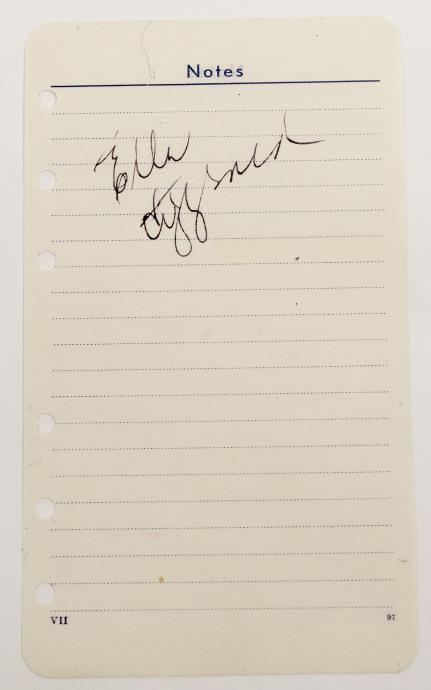 Notes
Ella
Fitzgerald
VII 97